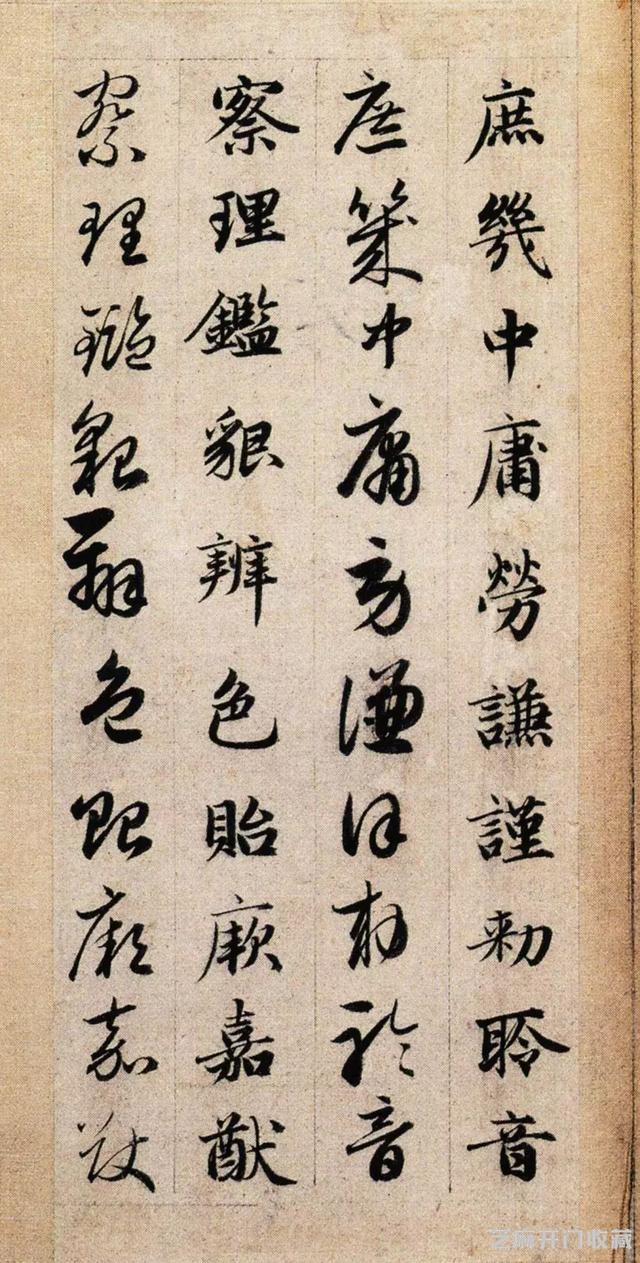 庶幾中庸勞謙謹勅聆音
庶幾中庸勞謙謹勅聆音
察理鑑貌辨色貽厥嘉猷
察理鑑貌辨色貽厥嘉猷
芝麻开门收藏